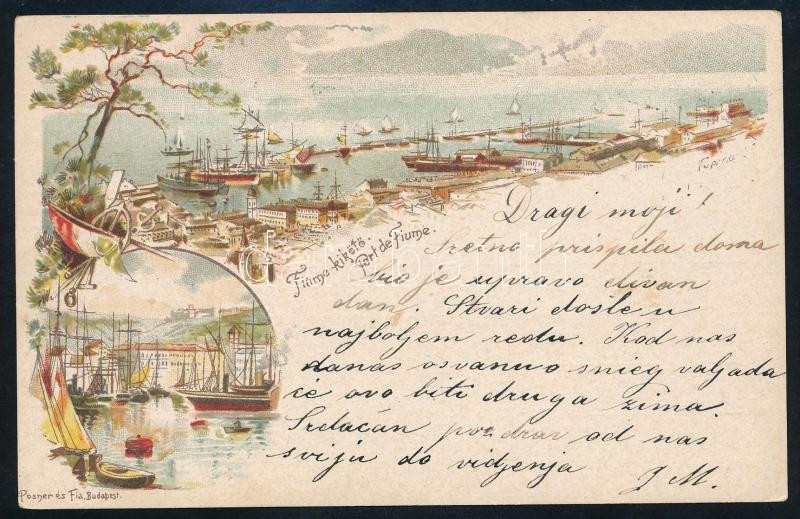 Fiume-kikötő.
Port de Fiume.
Dragi moji!
sretno prispila doma
bio je upravo divan
dan. Stvari dosle u
najboljem redu. Kod nas
danas osvanuo snieg valjada
će ovo biti druga zima.
Srdačan pozdrav od nas
sviju do vidjenja
J M.
Posner és Fia, Budapest.